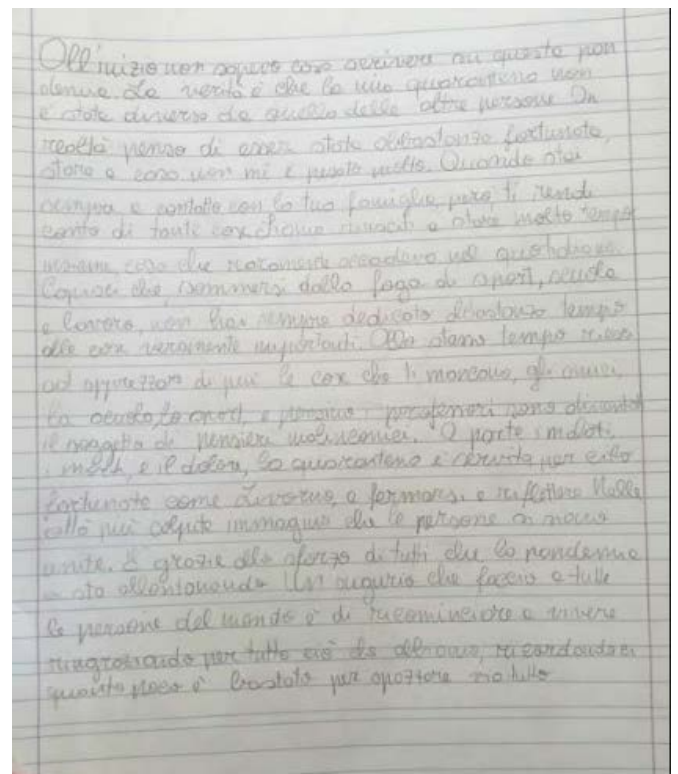 All'inizio non sapevo cosa scrivere su questa pan
demia. La verità è che la mia quarantena non
è stata diversa da quella delle altre persone. In
realtà penso di esser stata abbastanza fortunata,
stare a casa non mi è pesato molto. Quando stai
sempre a contatto con la tua famiglia, però, ti rendi
conto di tante cose, siamo riusciti a stare molto tempo
insieme, cosa che raramente accadeva nel quotidiano.
Capisci che, sommersi dalla foga di sport, scuola
e lavoro, non hai sempre dedicato abbastanza tempo
alle cose veramente importanti. Allo stesso tempo riesci
ad apprezzare di più le cose che ti mancano, gli amici,
la scuola, lo sport, e persino i sono diventati
il soggetto di pensieri malinconici. A parte i malati,
i morti, e il dolore, la quarantena è servita per chi
fortunato come a fermarsi e riflettere. Nelle
città più colpite immagino che le persone si
unite. È grazie allo sforzo di tutti che la pandemia
si sta allontanando. Un augurio che faccio a tutte
le persone del mondo è di ricominciare a vivere
ringraziando per tutto ciò che abbiamo, ricordandoci
quanto poco è bastato per spazzare via tutto